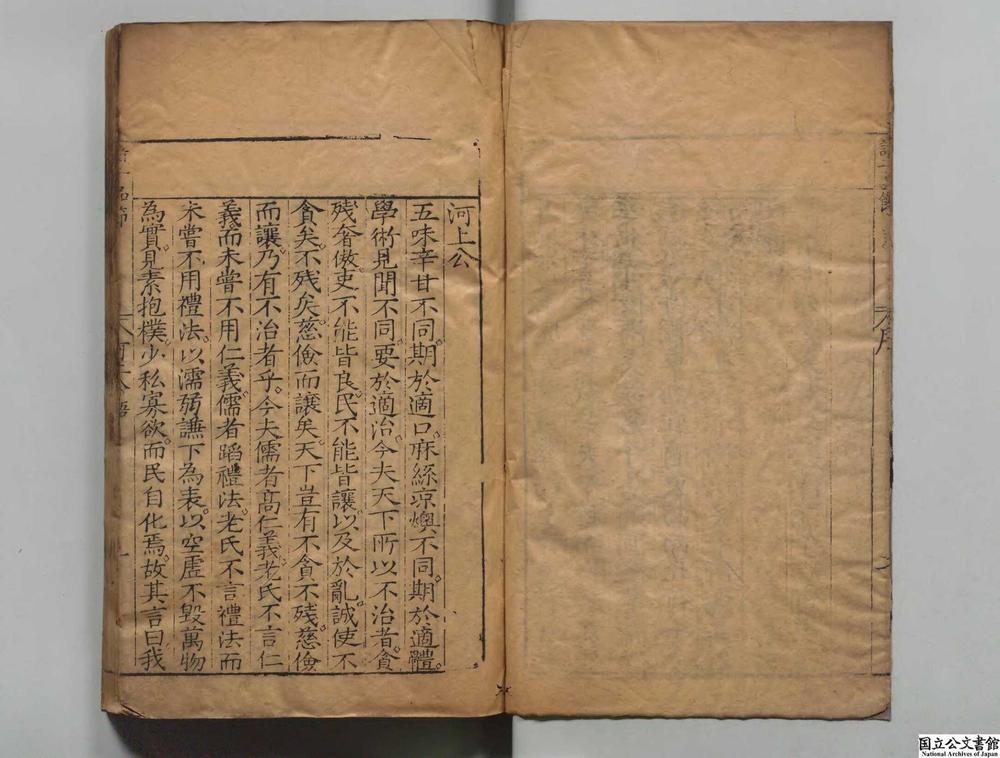 河上公
五味辛甘不同。期於適口。麻絲凉燠不同。期於適體。
學術見聞不同。要於適治。今夫天下所以不治者。貪
残奢傲。吏不能皆良。民不能皆讓。以及於亂。誠使不
貪矣。不残矣。慈儉而讓矣。天下豈有不貪不残。慈儉
而讓。乃有不治者乎。今夫儒者高仁義。老氏不言仁
義。而未嘗不用仁義。儒者蹈禮法。老氏不言禮法。而
未嘗不用禮法。以濡弱謙下為表。以空虛不毀萬物
為實。見素抱樸。少私寡欲。而民自化焉。故其言曰我
国立公文書館
National Archives of Japan